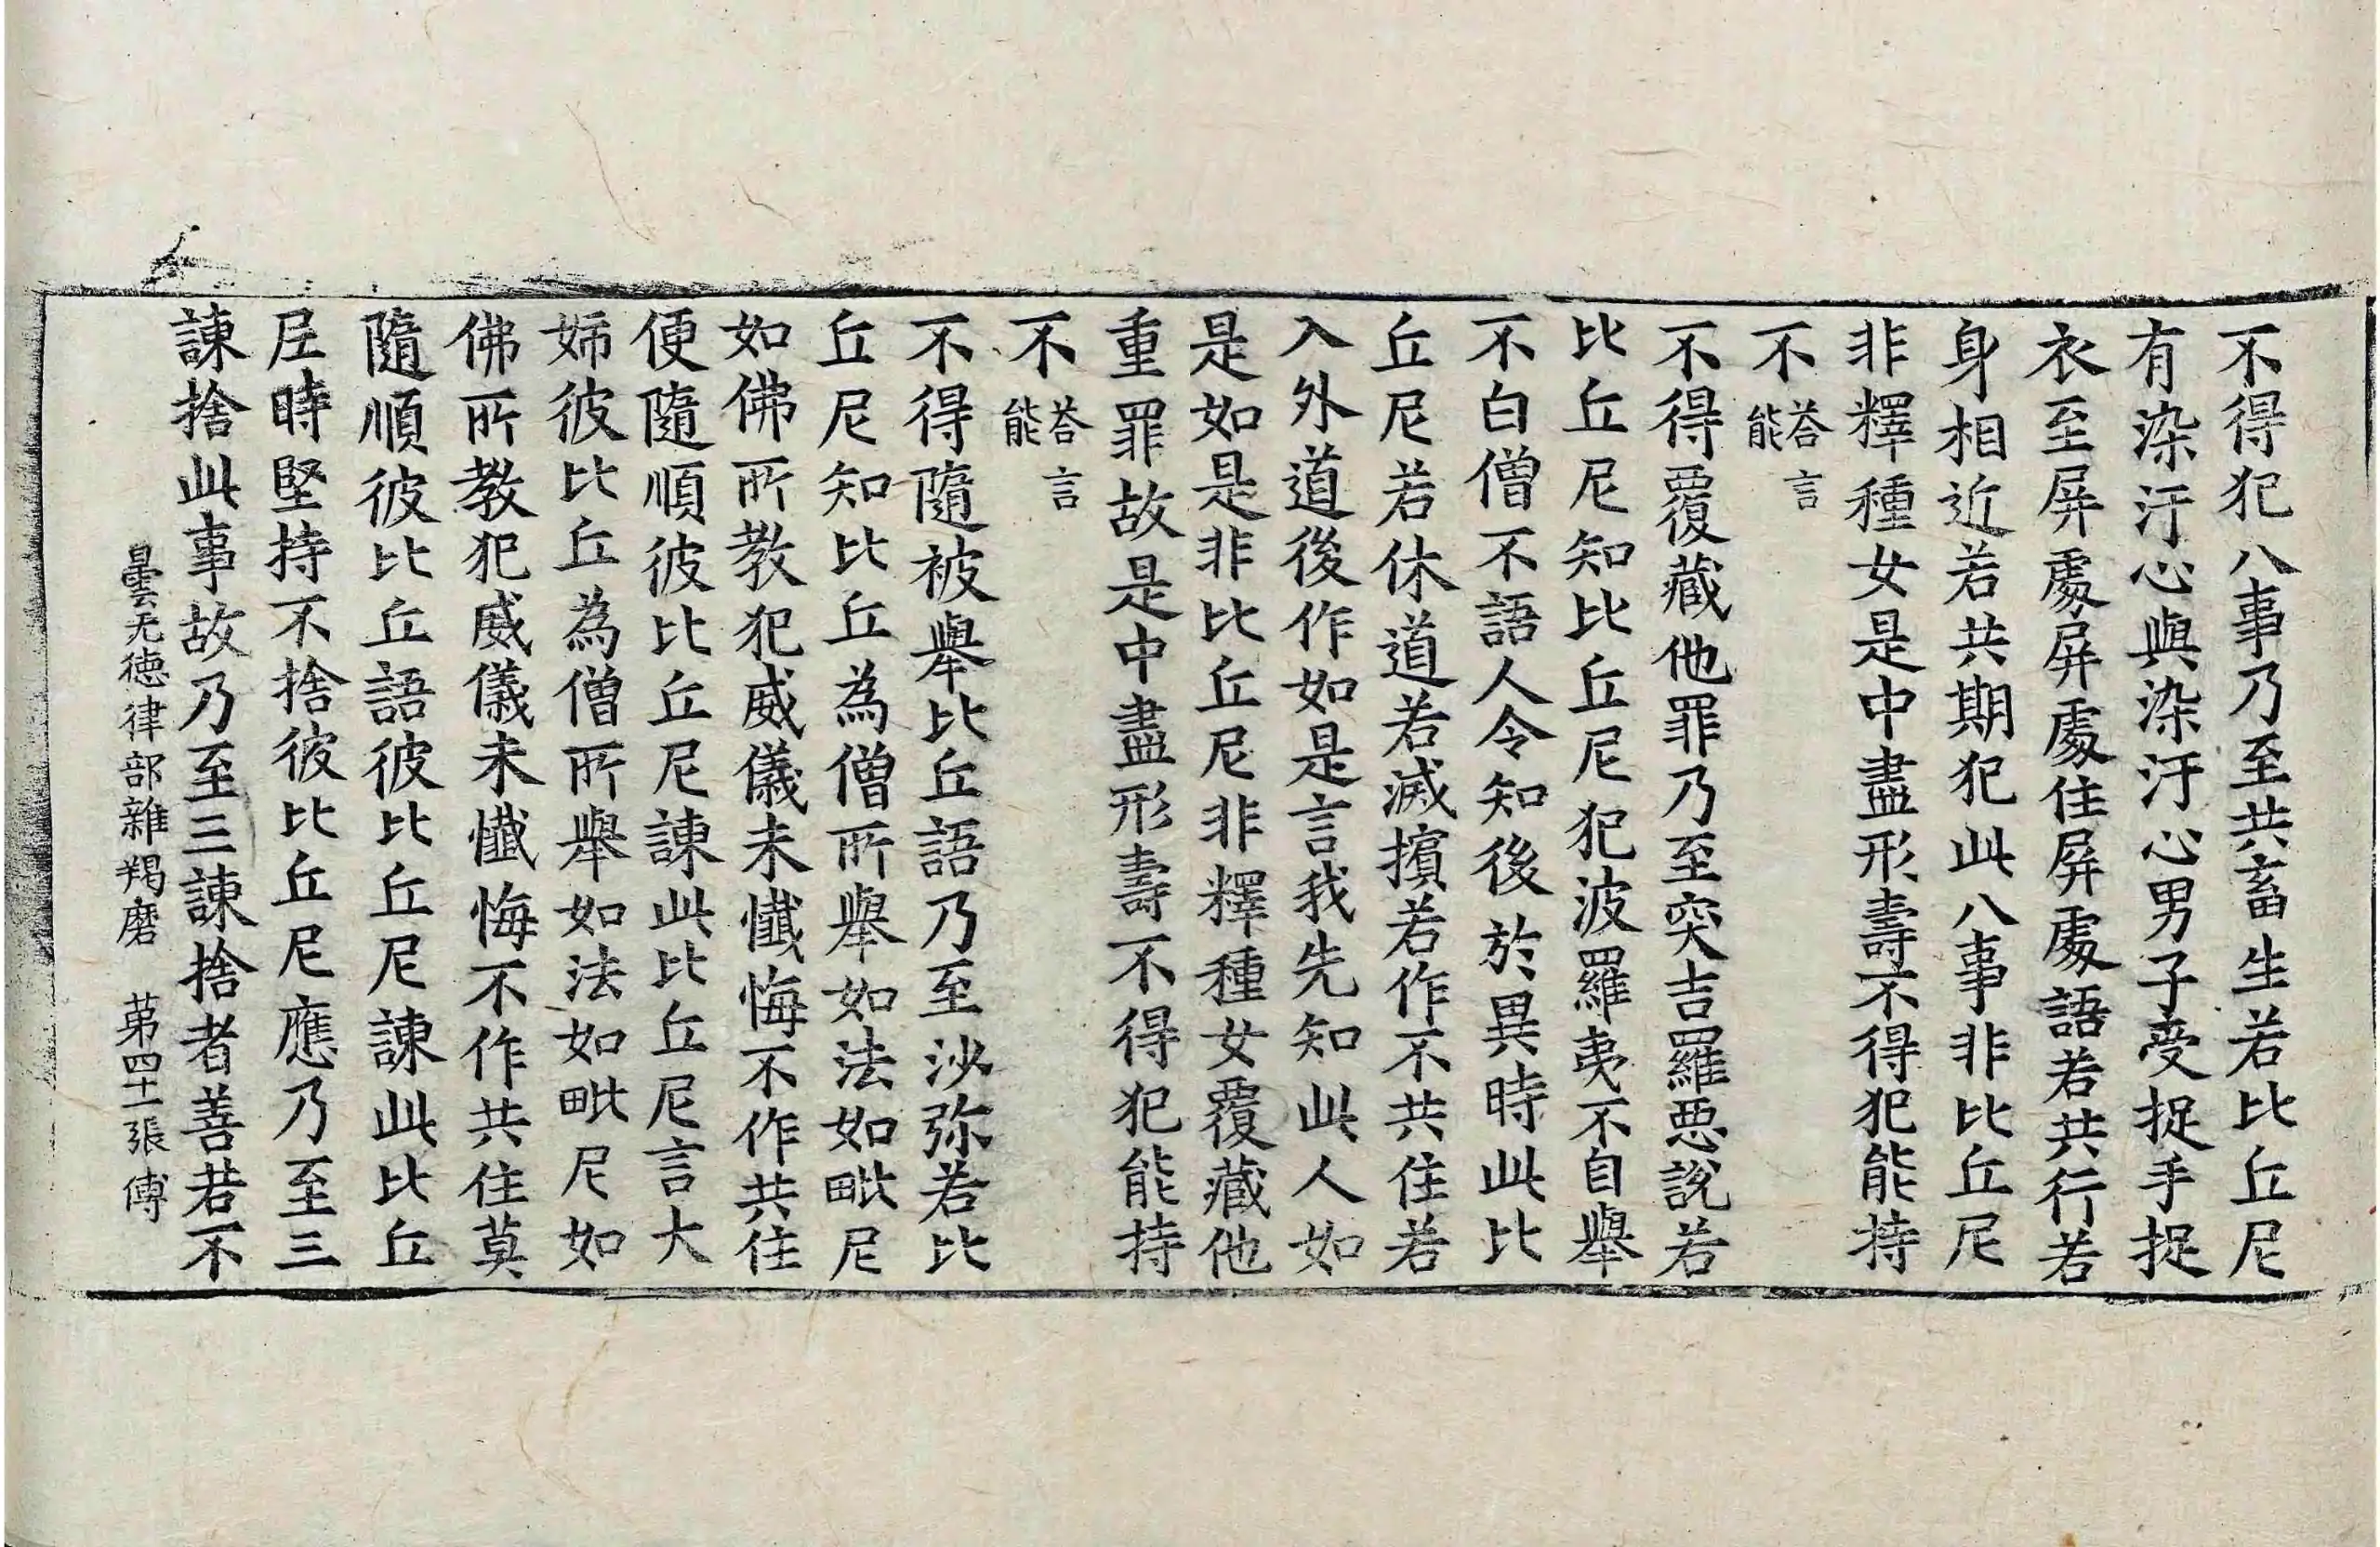 不得犯八事乃至共畜生若比丘尼
有染汙心與染汙心男子受捉手捉
衣至屏處屏處住屏處語若共行若
身相近若共期犯此八事非比丘尼
非釋種女是中盡形壽不得犯能持
不荅言能
不得覆藏他罪乃至突吉羅惡說若
比丘尼知比丘尼犯波羅夷不自舉
不白僧不語人令知後於異時此比
丘尼若休道若滅擯若作不共住若
入外道後作如是言我先知此人如
是如是非比丘尼非釋種女覆藏他
重罪故是中盡形壽不得犯能持
不荅言能
不得隨被舉比丘語乃至沙弥若比
丘尼知比丘為僧所舉如法如毗尼
如佛所教犯威儀未懺悔不作共住
便隨順彼比丘尼諫此比丘尼言大
姊彼比丘為僧所舉如法如毗尼如
佛所教犯威儀未懺悔不作共住莫
隨順彼比丘語彼比丘尼諫此比丘
尼時堅持不捨彼比丘尼應乃至三
諫捨此事故乃至三諫捨者善若不
曇无德律部雜羯磨 苐四十一張 傅